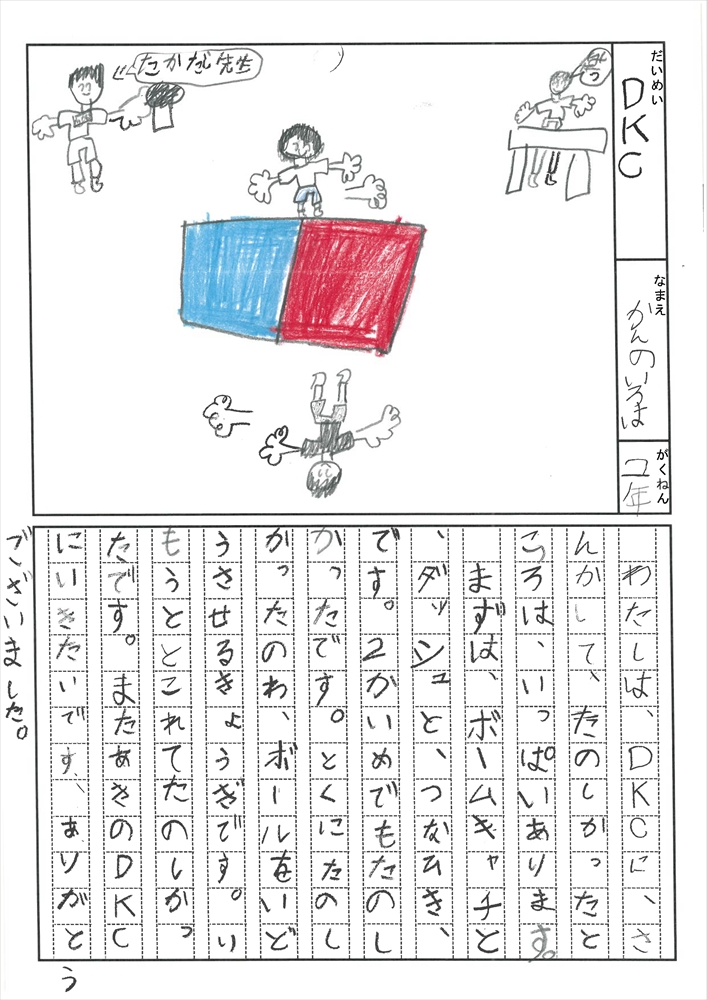 だいめい
DKC
なまえ
かんのいろは
がくねん
2年
たかだ先生
わたしは、DKCに、さ
んかして、たのしかったと
ころは、いっぱいあります。
まずは、ボームキャチと
、ダッシュと、つなひき、
です。2かいめでもたのし
かったです。とくにたのし
かったのわ、ボールをいど
うさせるきょうぎです。い
もうととこれてたのしかっ
たです。またあきのDKC
にいきたいです、ありがとう
ございました。